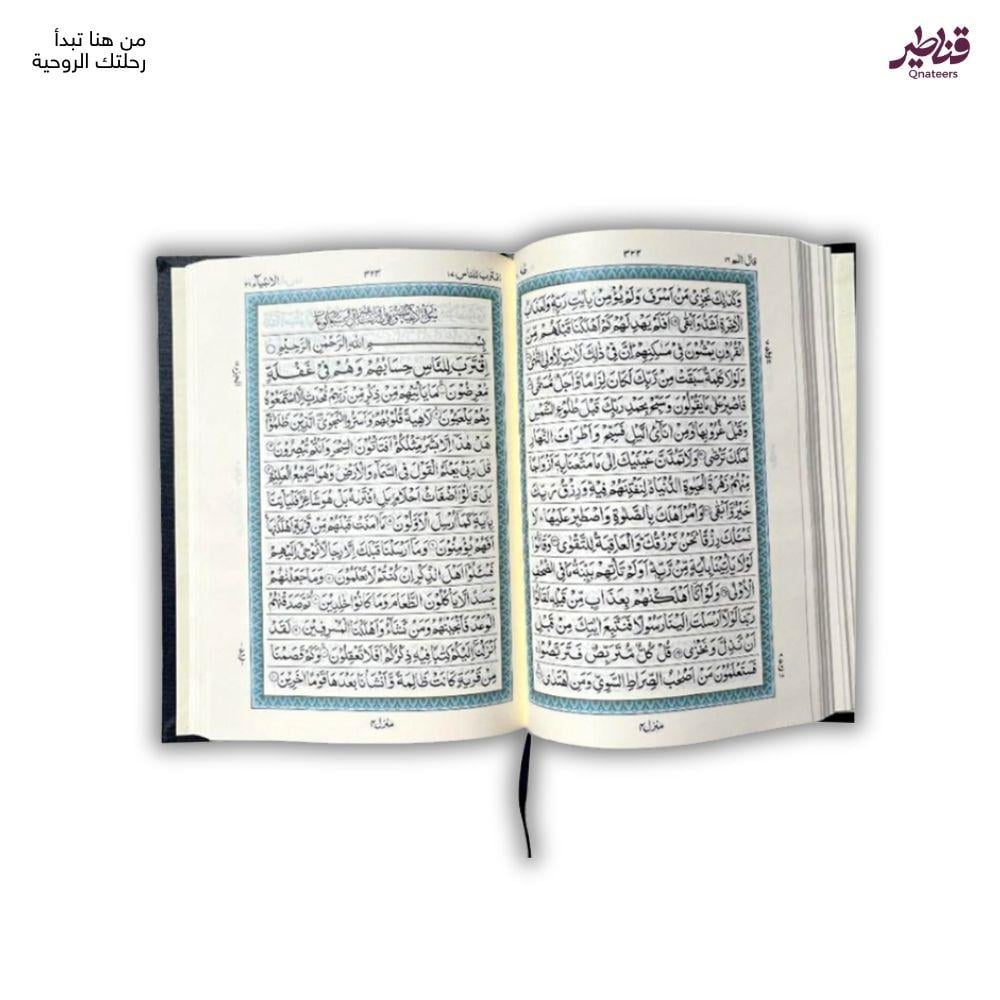 من هنا تبدأ
رحلتك الروحية
قناطير
Qnateers
قال الم ١٦
٣٢٢
وَكَذٰلِكَ نَجْزِیْ مَنْ اَسْرَفَ وَلَمْ یُؤْمِنْۢ بِاٰیٰتِ رَبِّهٖ وَلَعَذَابُ
الْاٰخِرَةِ اَشَدُّ وَاَبْقٰی اَفَلَمْ یَهْدِ لَهُمْ كَمْ اَهْلَكْنَا قَبْلَهُمْ مِّنَ
الْقُرُوْنِ یَمْشُوْنَ فِیْ مَسٰكِنِهِمْ اِنَّ فِیْ ذٰلِكَ لَاٰیٰتٍ لِّاُولِی النُّهٰی
وَلَوْلَا كَلِمَةٌ سَبَقَتْ مِنْ رَّبِّكَ لَكَانَ لِزَامًا وَّاَجَلٌ مُّسَمًّی
فَاصْبِرْ عَلٰی مَا یَقُوْلُوْنَ وَسَبِّحْ بِحَمْدِ رَبِّكَ قَبْلَ طُلُوْعِ الشَّمْسِ
وَقَبْلَ غُرُوْبِهَا وَمِنْ اٰنَآئِ الَّیْلِ فَسَبِّحْ وَاَطْرَافَ النَّهَارِ
لَعَلَّكَ تَرْضٰی وَلَا تَمُدَّنَّ عَیْنَیْكَ اِلٰی مَا مَتَّعْنَا بِهٖۤ اَزْوَاجًا
مِّنْهُمْ زَهْرَةَ الْحَیٰوةِ الدُّنْیَا لِنَفْتِنَهُمْ فِیْهِ وَرِزْقُ رَبِّكَ
خَیْرٌ وَّاَبْقٰی وَاْمُرْ اَهْلَكَ بِالصَّلٰوةِ وَاصْطَبِرْ عَلَیْهَا لَا
نَسْـَٔلُكَ رِزْقًا نَحْنُ نَرْزُقُكَ وَالْعَاقِبَةُ لِلتَّقْوٰی وَقَالُوْا
لَوْلَا یَاْتِیْنَا بِاٰیَةٍ مِّنْ رَّبِّهٖ اَوَلَمْ تَاْتِهِمْ بَیِّنَةُ مَا فِی الصُّحُفِ
الْاُوْلٰی وَلَوْ اَنَّاۤ اَهْلَكْنٰهُمْ بِعَذَابٍ مِّنْ قَبْلِهٖ لَقَالُوْا
رَبَّنَا لَوْلَاۤ اَرْسَلْتَ اِلَیْنَا رَسُوْلًا فَنَتَّبِعَ اٰیٰتِكَ مِنْ قَبْلِ
اَنْ نَّذِلَّ وَنَخْزٰی قُلْ كُلٌّ مُّتَرَبِّصٌ فَتَرَبَّصُوْا
فَسَتَعْلَمُوْنَ مَنْ اَصْحٰبُ الصِّرَاطِ السَّوِیِّ وَمَنِ اهْتَدٰی
منزل ٤
اقترب للناس ١٧
٣٢٣
الانبیآء ٢١
بِسْمِ اللّٰهِ الرَّحْمٰنِ الرَّحِیْمِ
اِقْتَرَبَ لِلنَّاسِ حِسَابُهُمْ وَهُمْ فِیْ غَفْلَةٍ
مُّعْرِضُوْنَ مَا یَاْتِیْهِمْ مِّنْ ذِكْرٍ مِّنْ رَّبِّهِمْ مُّحْدَثٍ اِلَّا اسْتَمَعُوْهُ
وَهُمْ یَلْعَبُوْنَ لَاهِیَةً قُلُوْبُهُمْ وَاَسَرُّوا النَّجْوَی الَّذِیْنَ ظَلَمُوْا
هَلْ هٰذَاۤ اِلَّا بَشَرٌ مِّثْلُكُمْ اَفَتَاْتُوْنَ السِّحْرَ وَاَنْتُمْ تُبْصِرُوْنَ
قٰلَ رَبِّیْ یَعْلَمُ الْقَوْلَ فِی السَّمَآءِ وَالْاَرْضِ وَهُوَ السَّمِیْعُ الْعَلِیْمُ
بَلْ قَالُوْۤا اَضْغَاثُ اَحْلَامٍۭ بَلِ افْتَرٰىهُ بَلْ هُوَ شَاعِرٌ فَلْیَاْتِنَا
بِاٰیَةٍ كَمَاۤ اُرْسِلَ الْاَوَّلُوْنَ مَاۤ اٰمَنَتْ قَبْلَهُمْ مِّنْ قَرْیَةٍ اَهْلَكْنٰهَا
اَفَهُمْ یُؤْمِنُوْنَ وَمَاۤ اَرْسَلْنَا قَبْلَكَ اِلَّا رِجَالًا نُّوْحِیْۤ اِلَیْهِمْ
فَسْـَٔلُوْۤا اَهْلَ الذِّكْرِ اِنْ كُنْتُمْ لَا تَعْلَمُوْنَ وَمَا جَعَلْنٰهُمْ
جَسَدًا لَّا یَاْكُلُوْنَ الطَّعَامَ وَمَا كَانُوْا خٰلِدِیْنَ ثُمَّ صَدَقْنٰهُمُ
الْوَعْدَ فَاَنْجَیْنٰهُمْ وَمَنْ نَّشَآءُ وَاَهْلَكْنَا الْمُسْرِفِیْنَ لَقَدْ
اَنْزَلْنَاۤ اِلَیْكُمْ كِتٰبًا فِیْهِ ذِكْرُكُمْ اَفَلَا تَعْقِلُوْنَ وَكَمْ قَصَمْنَا
مِنْ قَرْیَةٍ كَانَتْ ظَالِمَةً وَّاَنْشَاْنَا بَعْدَهَا قَوْمًا اٰخَرِیْنَ
منزل ٤